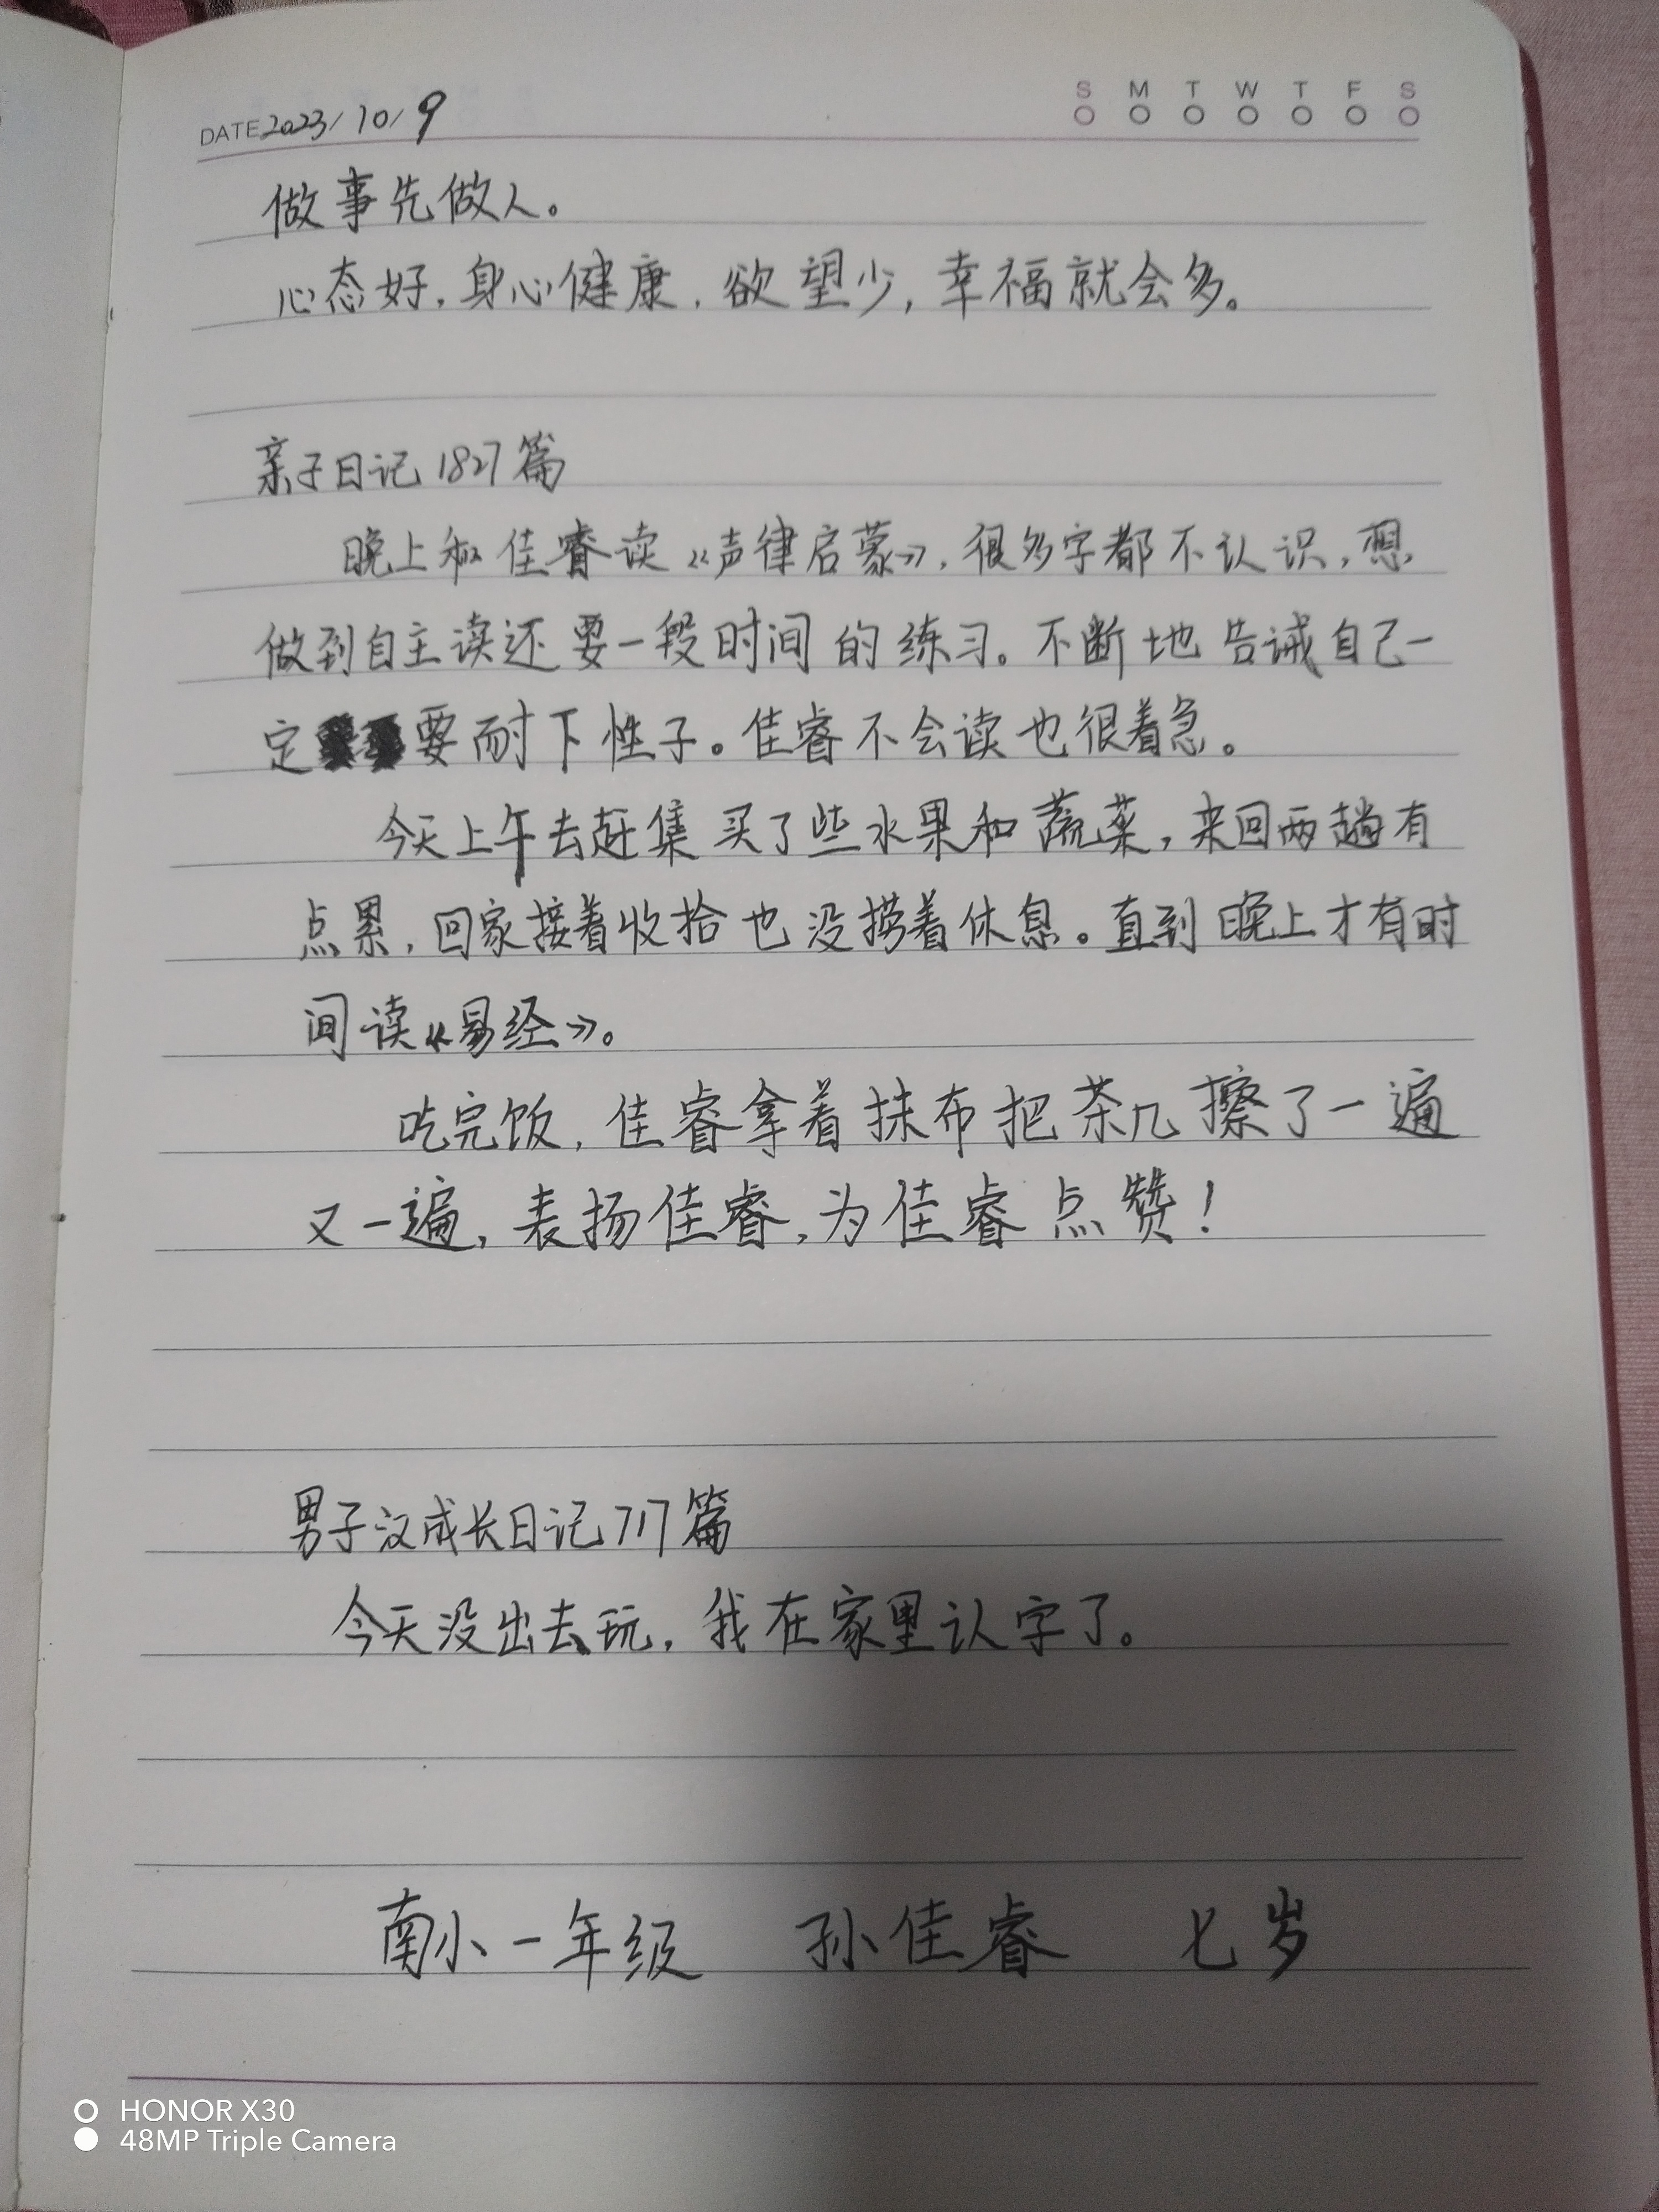 DATE 2023/10/9
S M T W T F S
做事先做人。
心态好,身心健康,欲望少,幸福就会多。
亲子日记1827篇
晚上和佳睿读《声律启蒙》,很多字都不认识,想
做到自主读还要一段时间的练习。不断地告诫自己一
定要耐下性子。佳睿不会读也很着急。
今天上午去赶集买了些水果和蔬菜,来回两趟有
点累,回家接着收拾也没捞着休息。直到晚上才有时
间读《易经》。
吃完饭,佳睿拿着抹布把茶几擦了一遍
又一遍,表扬佳睿,为佳睿点赞!
男子汉成长日记717篇
今天没出去玩,我在家里认字了。
南小一年级 孙佳睿 七岁
HONOR X30
48MP Triple Camera